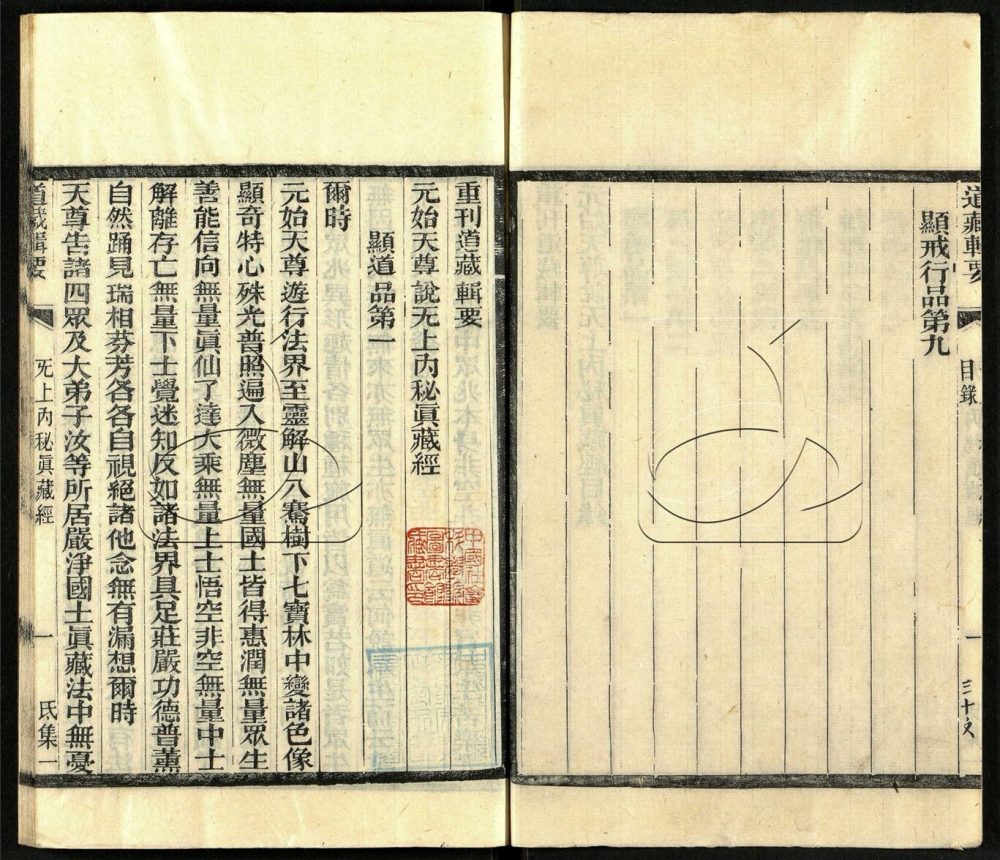 道藏輯要
目錄
一
三十文
顯戒行品第九
重刊道藏輯要
元始天尊說无上內秘眞藏經
顯道品第一
爾時
元始天尊遊行法界至靈解山八騫樹下七寶林中變諸色像
顯奇特心殊光普照遍入微塵無量國土皆得惠潤無量眾生
善能信向無量眞仙了達大乘無量上士悟空非空無量中士
解離存亡無量下士覺迷知反如諸法界具足莊嚴功德普薰
自然踊見瑞相芬芳各各自視絕諸他念無有漏想爾時
天尊告諸四眾及大弟子汝等所居嚴淨國土眞藏法中無憂
道藏輯要
无上內秘眞藏經
一
氏集一